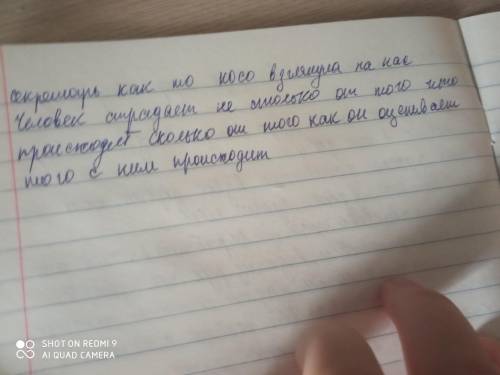 секретарь как то косо взглянула на нас
Человек страдает не столько от того что
происходит сколько от того как он оценивает
того с ним происходит
SHOT ON REDMI 9
AI QUAD CAMERA